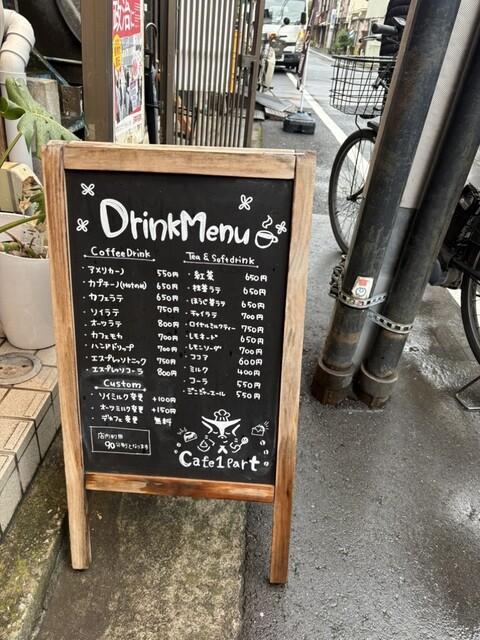 政治に
DrinkMenu
CoffeeDrink
・アメリカーノ 550円
・カプチーノ(Hotのみ) 650円
・カフェラテ 650円
・ソイラテ 750円
・オーツラテ 800円
・カフェモカ 700円
・ハンドドリップ 700円
・エスプレッソトニック 750円
・エスプレッソコーラ 800円
Custom
・ソイミルク変更 +100円
・オーツミルク変更 +150円
・デカフェ変更 無料
店内利用
90分制となります
Tea & Softdrink
・紅茶 650円
・抹茶ラテ 650円
・ほうじ茶ラテ 650円
・チャイラテ 700円
・ロイヤルミルクティー 750円
・レモネード 650円
・レモンソーダ 700円
・ココア 600円
・ミルク 400円
・コーラ 550円
・ジンジャーエール 550円
Cafe1Part